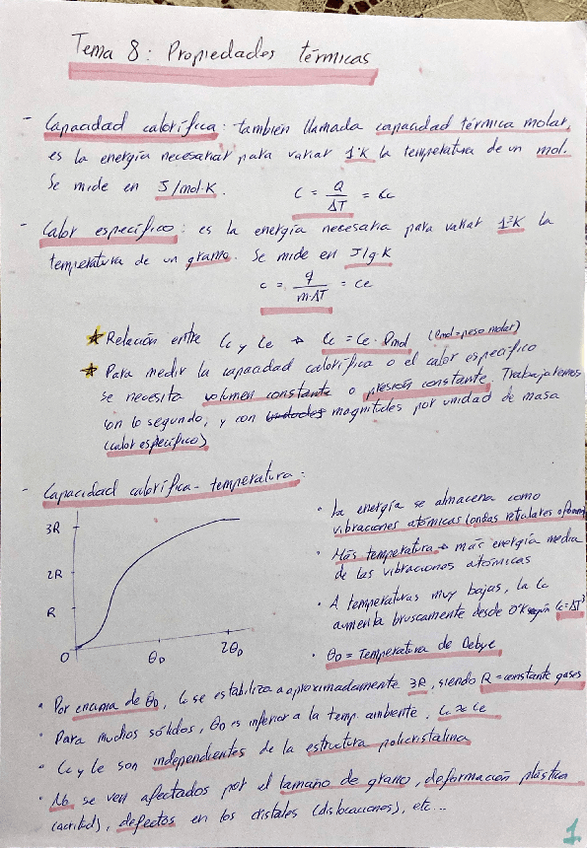 Tema 8: Propiedades térmicas
- Capacidad calorífica: también llamada capacidad térmica molar,
es la energía necesariar para variar 1ºK la temperatura de un mol.
Se mide en J/mol·K. C = Q/ΔT = Cc
- Calor específico: es la energía necesaria para variar 1ºK la
temperatura de un gramo. Se mide en J/g·K
c = q/m·ΔT = Ce
★ Relación entre Cc y Ce → Cc = Ce · Pmol (Pmol=peso molar)
★ Para medir la capacidad calorífica o el calor específico
se necesita volumen constante o presión constante. Trabajaremos
con lo segundo, y con magnitudes por unidad de masa
(calor específico)
- Capacidad calorífica - temperatura:
3R
2R
R
0
θD
2θD
• La energía se almacena como
vibraciones atómicas (ondas reticulares o
• Más temperatura → más energía media
de las vibraciones atómicas
• A temperaturas muy bajas, la Cc
aumenta bruscamente desde 0ºK según Cc=AT³
• θD = Temperatura de Debye
• Por encima de θD, Cc se estabiliza a aproximadamente 3R, siendo R = constante gases
• Para muchos sólidos, θD es inferior a la temp. ambiente. Cc ≈ Ce
• Cc y Ce son independientes de la estructura policristalina
• No se ven afectados por el tamaño de grano, deformación plástica
(acritud), defectos en los cristales (dislocaciones), etc...
1